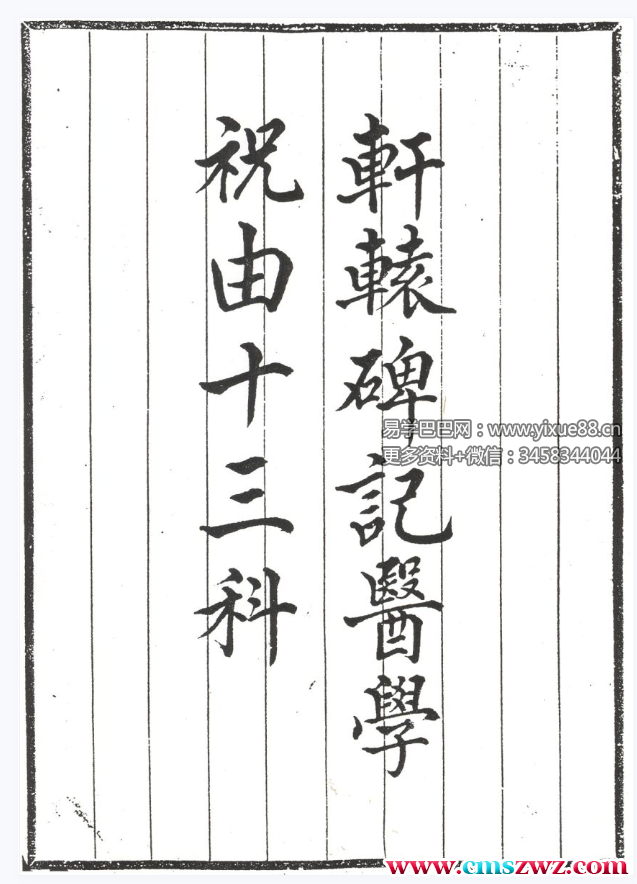 軒轅碑記醫學
祝由十三科
易学巴巴网：www.yixue88.cn
更多资料+微信：3458344044
www.cmszwz.com